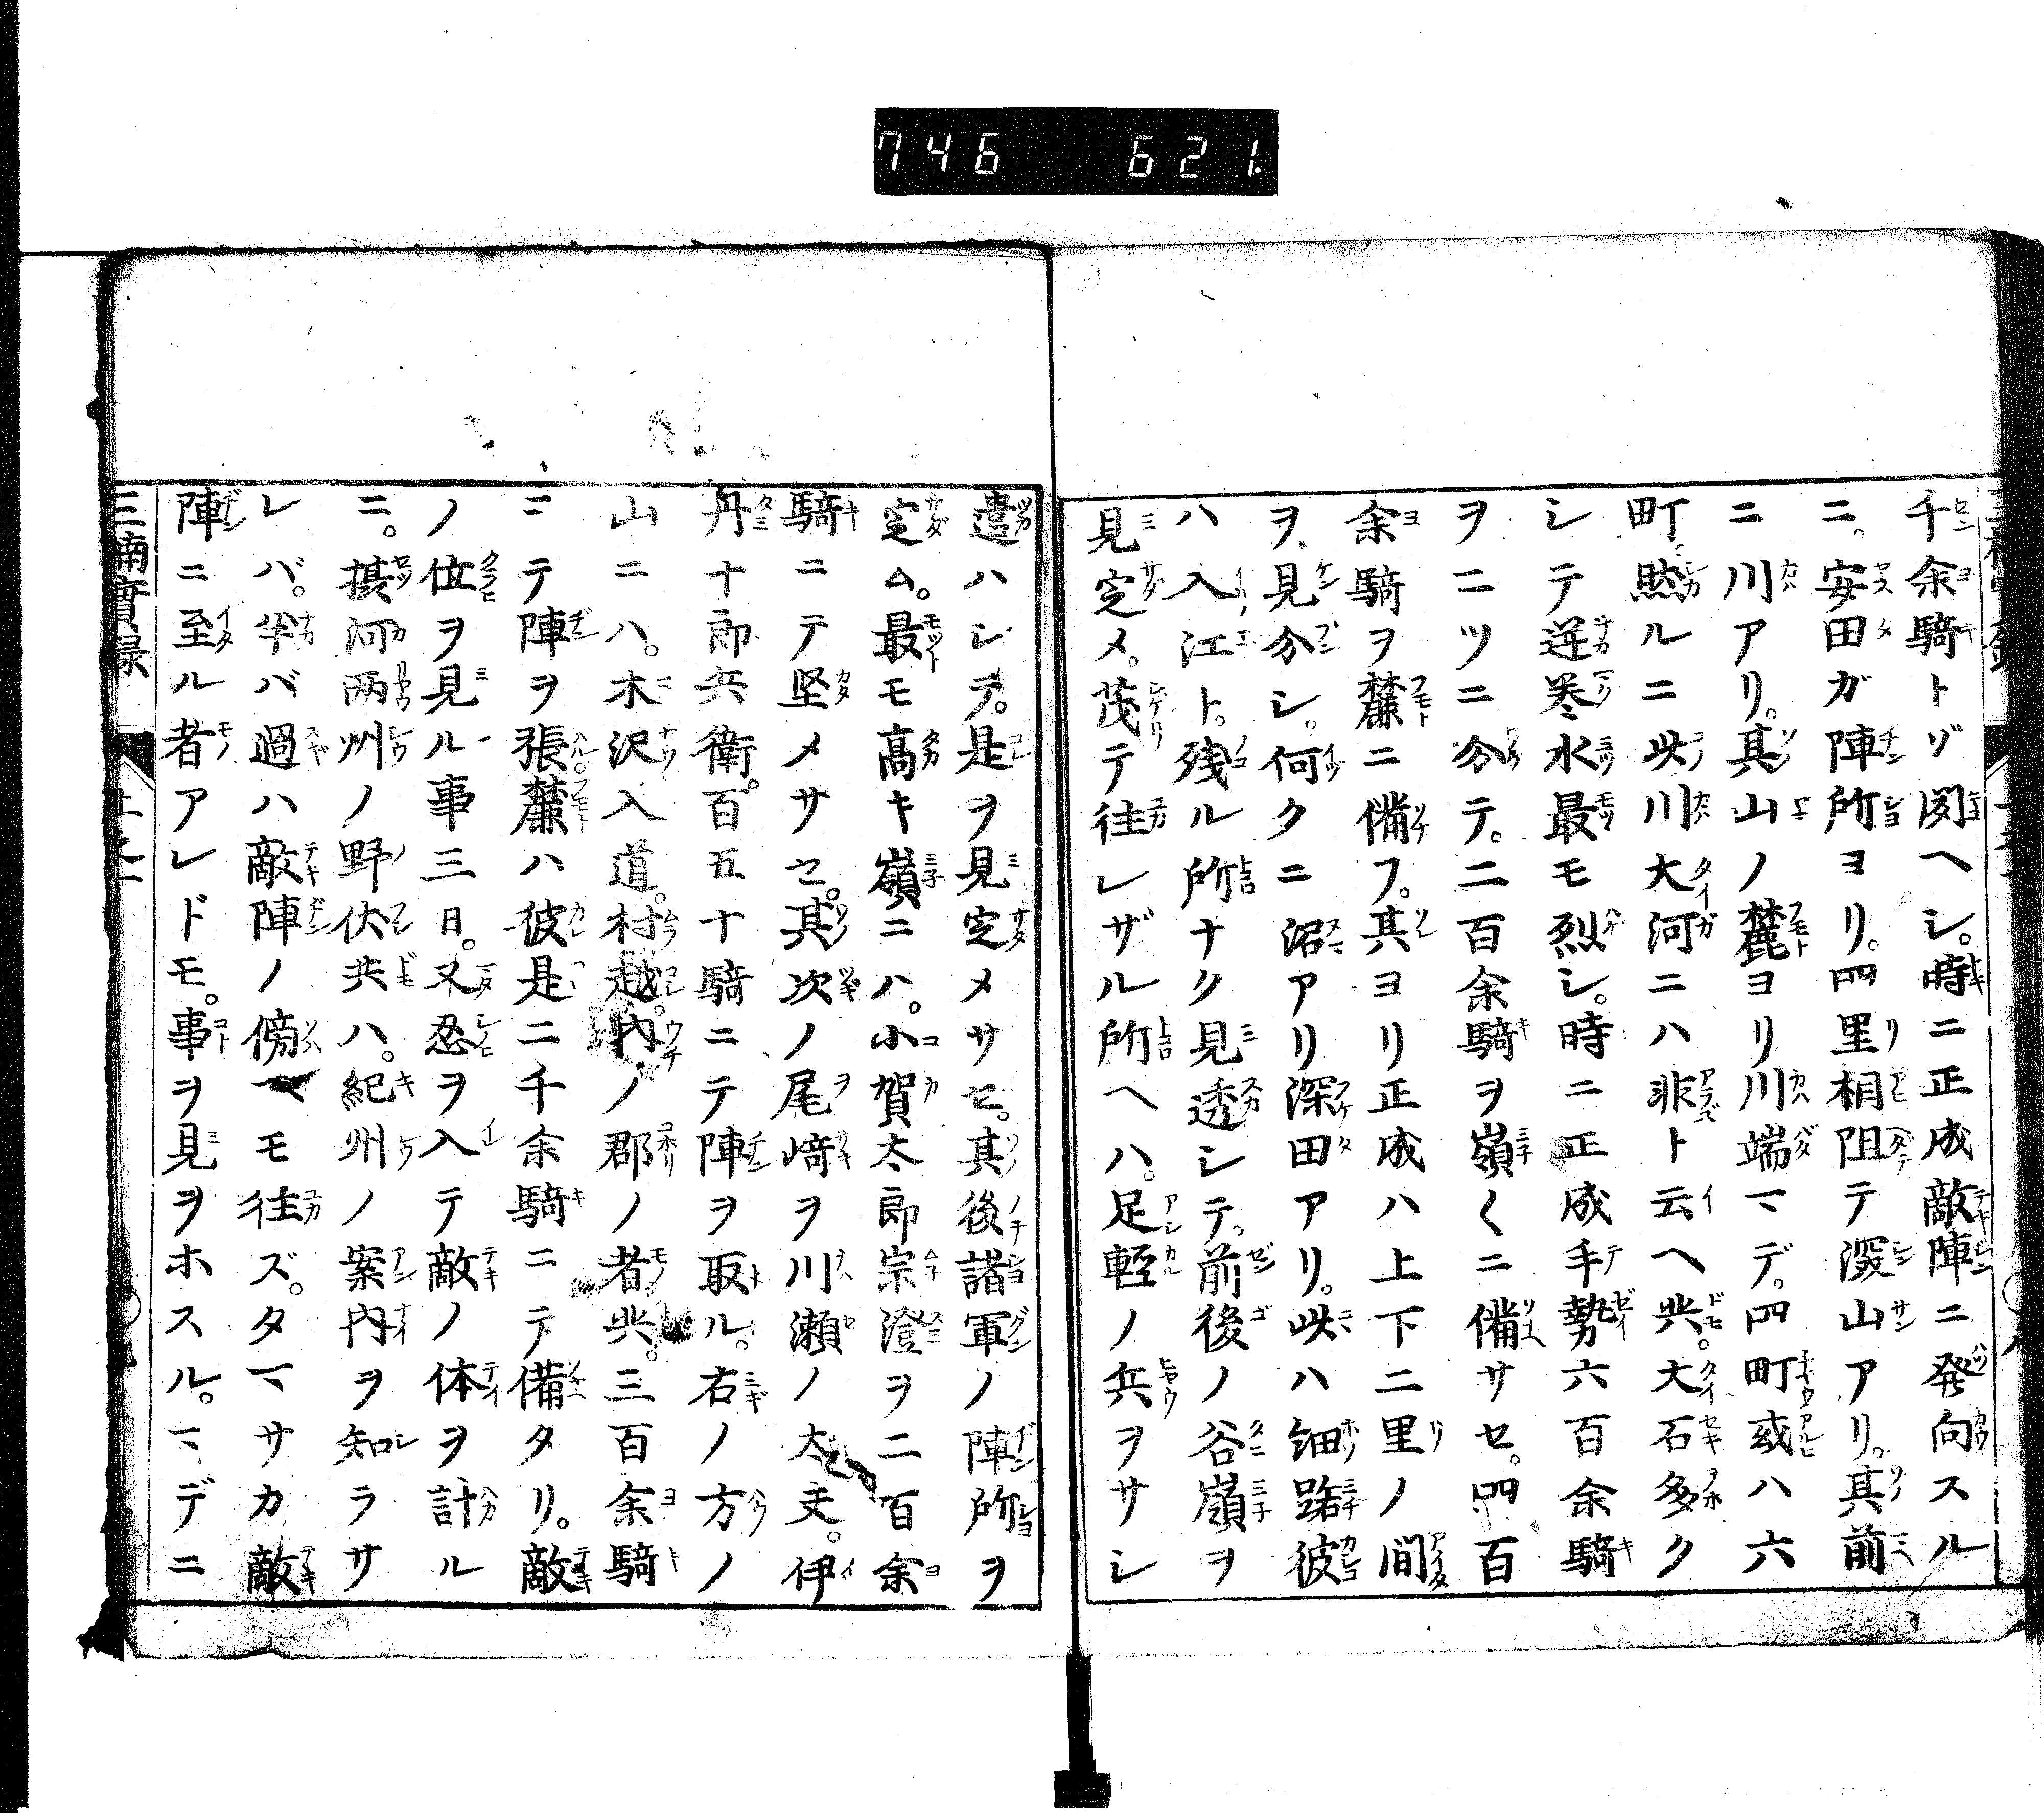 746 621.
千余騎トゾ聞ヘシ。時ニ正成敵陣ニ発向スル
ニ。安田ガ陣所ヨリ。四里相阻テ深山アリ。其前
ニ川アリ。其山ノ麓ヨリ川端マデ。四町或ハ六
町。然ルニ此川大河ニハ非ト云ヘ共。大石多ク
シテ逆巻水最モ烈シ。時ニ正成手勢六百余騎
ヲ二ツニ分テ。二百余騎ヲ嶺〱ニ備サセ。四百
余騎ヲ麓ニ備フ。其ヨリ正成ハ上下二里ノ間
ヲ見分シ。何クニ沼アリ深田アリ。此ハ細路彼
ハ入江ト。残ル所ナク見透シテ。前後ノ谷嶺ヲ
見定メ。茂テ往レザル所ヘハ。足軽ノ兵ヲサシ
遣ハシテ。是ヲ見定メサセ。其後諸軍ノ陣所ヲ
定ム。最モ高キ嶺ニハ。小賀太郎宗澄ヲ二百余
騎ニテ堅メサセ。其次ノ尾﨑ヲ川瀬ノ太夫。伊
丹十郎兵衛。百五十騎ニテ陣ヲ取ル。右ノ方ノ
山ニハ。木沢入道。村越。内ノ郡ノ者共。三百余騎
ニテ陣ヲ張。麓ハ彼是二千余騎ニテ備タリ。敵
ノ位ヲ見ル事三日。又忍ヲ入テ敵ノ体ヲ計ル
ニ。摂河両州ノ野伏共ハ。紀州ノ案内ヲ知ラサ
レバ。半バ過ハ敵陣ノ傍マモ往ズ。タマサカ敵
陣ニ至ル者アレドモ。事ヲ見ヲホスル。マデニ
三楠實録